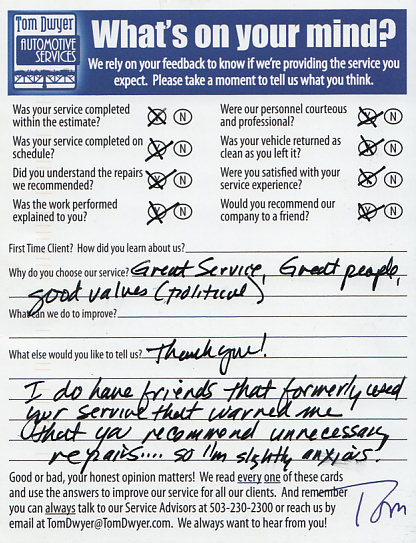 Tom Dwyer
AUTOMOTIVE
SERVICES
What's on your mind?
We rely on your feedback to know if we're providing the service you
expect. Please take a moment to tell us what you think.
Was your service completed
within the estimate? Y N
Was your service completed on
schedule? Y N
Did you understand the repairs
we recommended? Y N
Was the work performed
explained to you? Y N
Were our personnel courteous
and professional? Y N
Was your vehicle returned as
clean as you left it? Y N
Were you satisfied with your
service experience? Y N
Would you recommend our
company to a friend? Y N
First Time Client? How did you learn about us?
Why do you choose our service? Great Service, Great people,
good values (political)
What can we do to improve?
What else would you like to tell us? Thank you!
I do have friends that formerly used
your service that warned me
that you recommend unnecessary
repairs.... so I'm slightly anxious
Good or bad, your honest opinion matters! We read every one of these cards
and use the answers to improve our service for all our clients. And remember
you can always talk to our Service Advisors at 503-230-2300 or reach us by
email at TomDwyer@TomDwyer.com. We always want to hear from you!
Tom